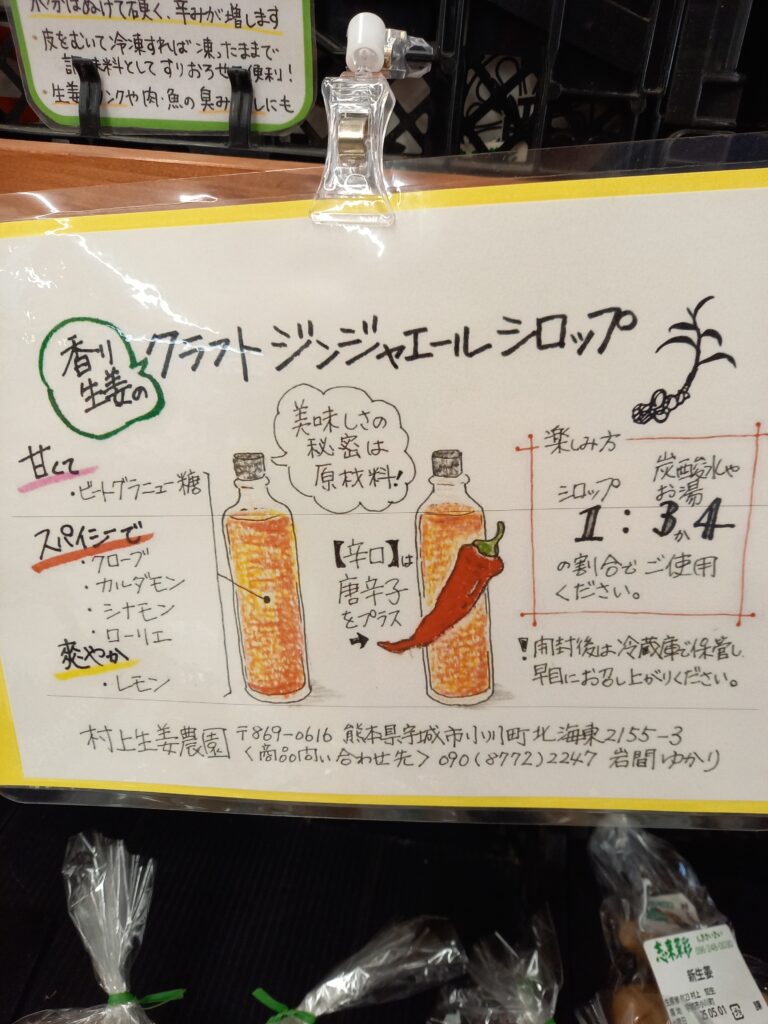 水分はぬけて硬く、辛みが増します
・皮をむいて冷凍すれば凍ったままで
味料としてすりおろせ 便利!
・生姜 リンクや肉・魚の臭み しにも
香り
生姜の
クラフト ジンジャエール シロップ
甘くて
・ビートグラニュー糖
スパイシーで
・クローブ
・カルダモン
・シナモン
・ローリエ
爽やか
・レモン
美味しさの
秘密は
原材料!
【辛口】は
唐辛子
をプラス
➔
楽しみ方
シロップ
炭酸水や
お湯
1:3か4
の割合でご使用
ください。
!開封後は冷蔵庫で保管し
早目にお召し上がりください。
村上生姜農園 〒869-0616 熊本県宇城市小川町北海東2155-3
<商品問い合わせ先> 090(8772)2247 岩間ゆかり
志来菜彩
新生姜
05.01